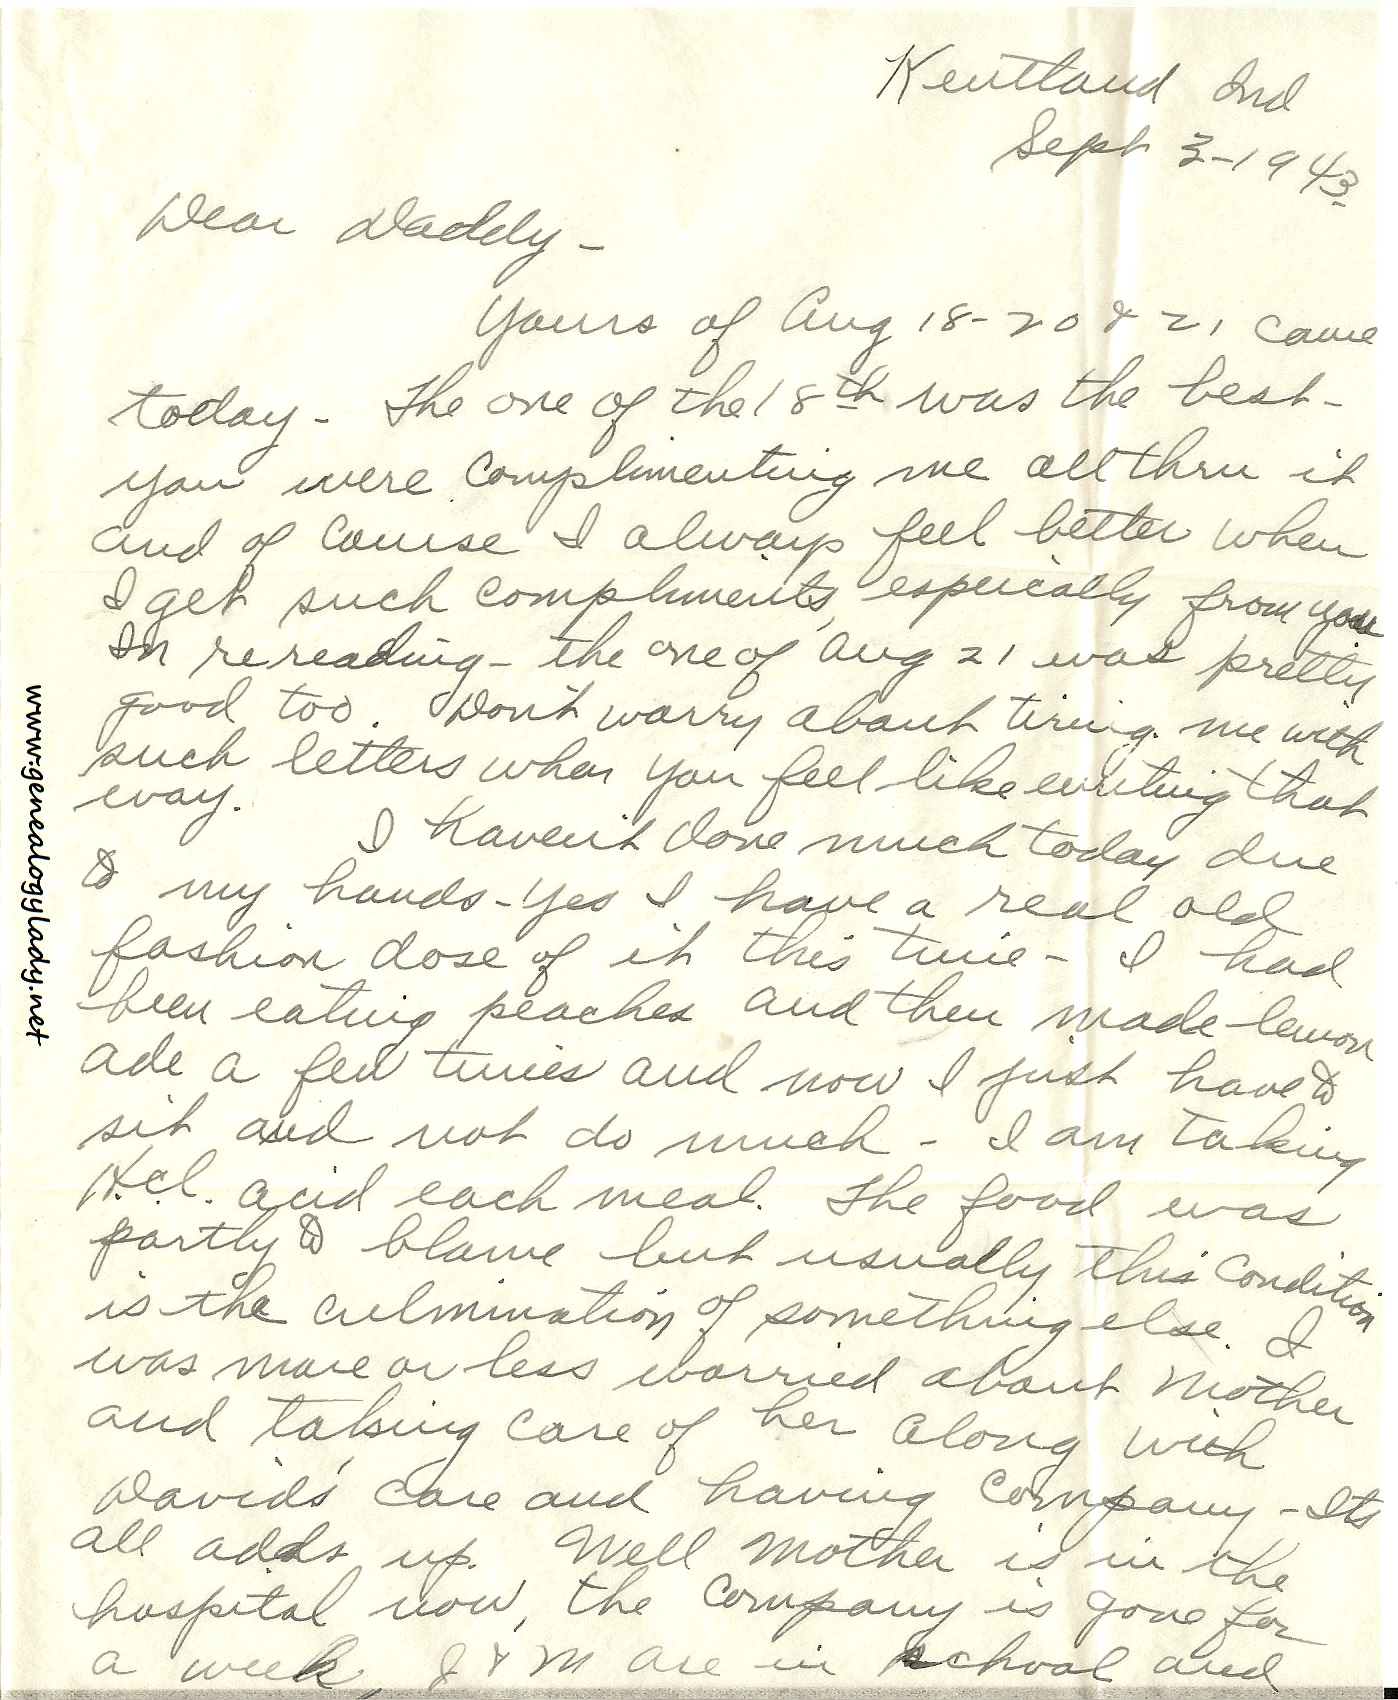 Kentland Ind
Sept 3-1943
Dear Daddy-
Yours of Aug 18-20 & 21 came
today- The one of the 18th was the best-
you were complimenting me all thru it
and of course I always feel better when
I get such compliments, especially from you
In rereading- the one of Aug 21 was pretty
good too. Don't worry about tiring me with
such letters when you feel like writing that
way.
I haven't done much today due
to my hands- Yes I have a real old
fashion dose of it this time- I had
been eating peaches and then made lemon
ade a few times and now I just have to
sit and not do much- I am taking
H.cl. acid each meal. The food was
partly to blame but usually this condition
is the culmination of something else. I
was more or less worried about Mother
and taking care of her along with
David's care and having company- Its
all adds up. Well Mother is in the
hospital now, the company is gone for
a week, J & M are in school and
www.genealogylady.net